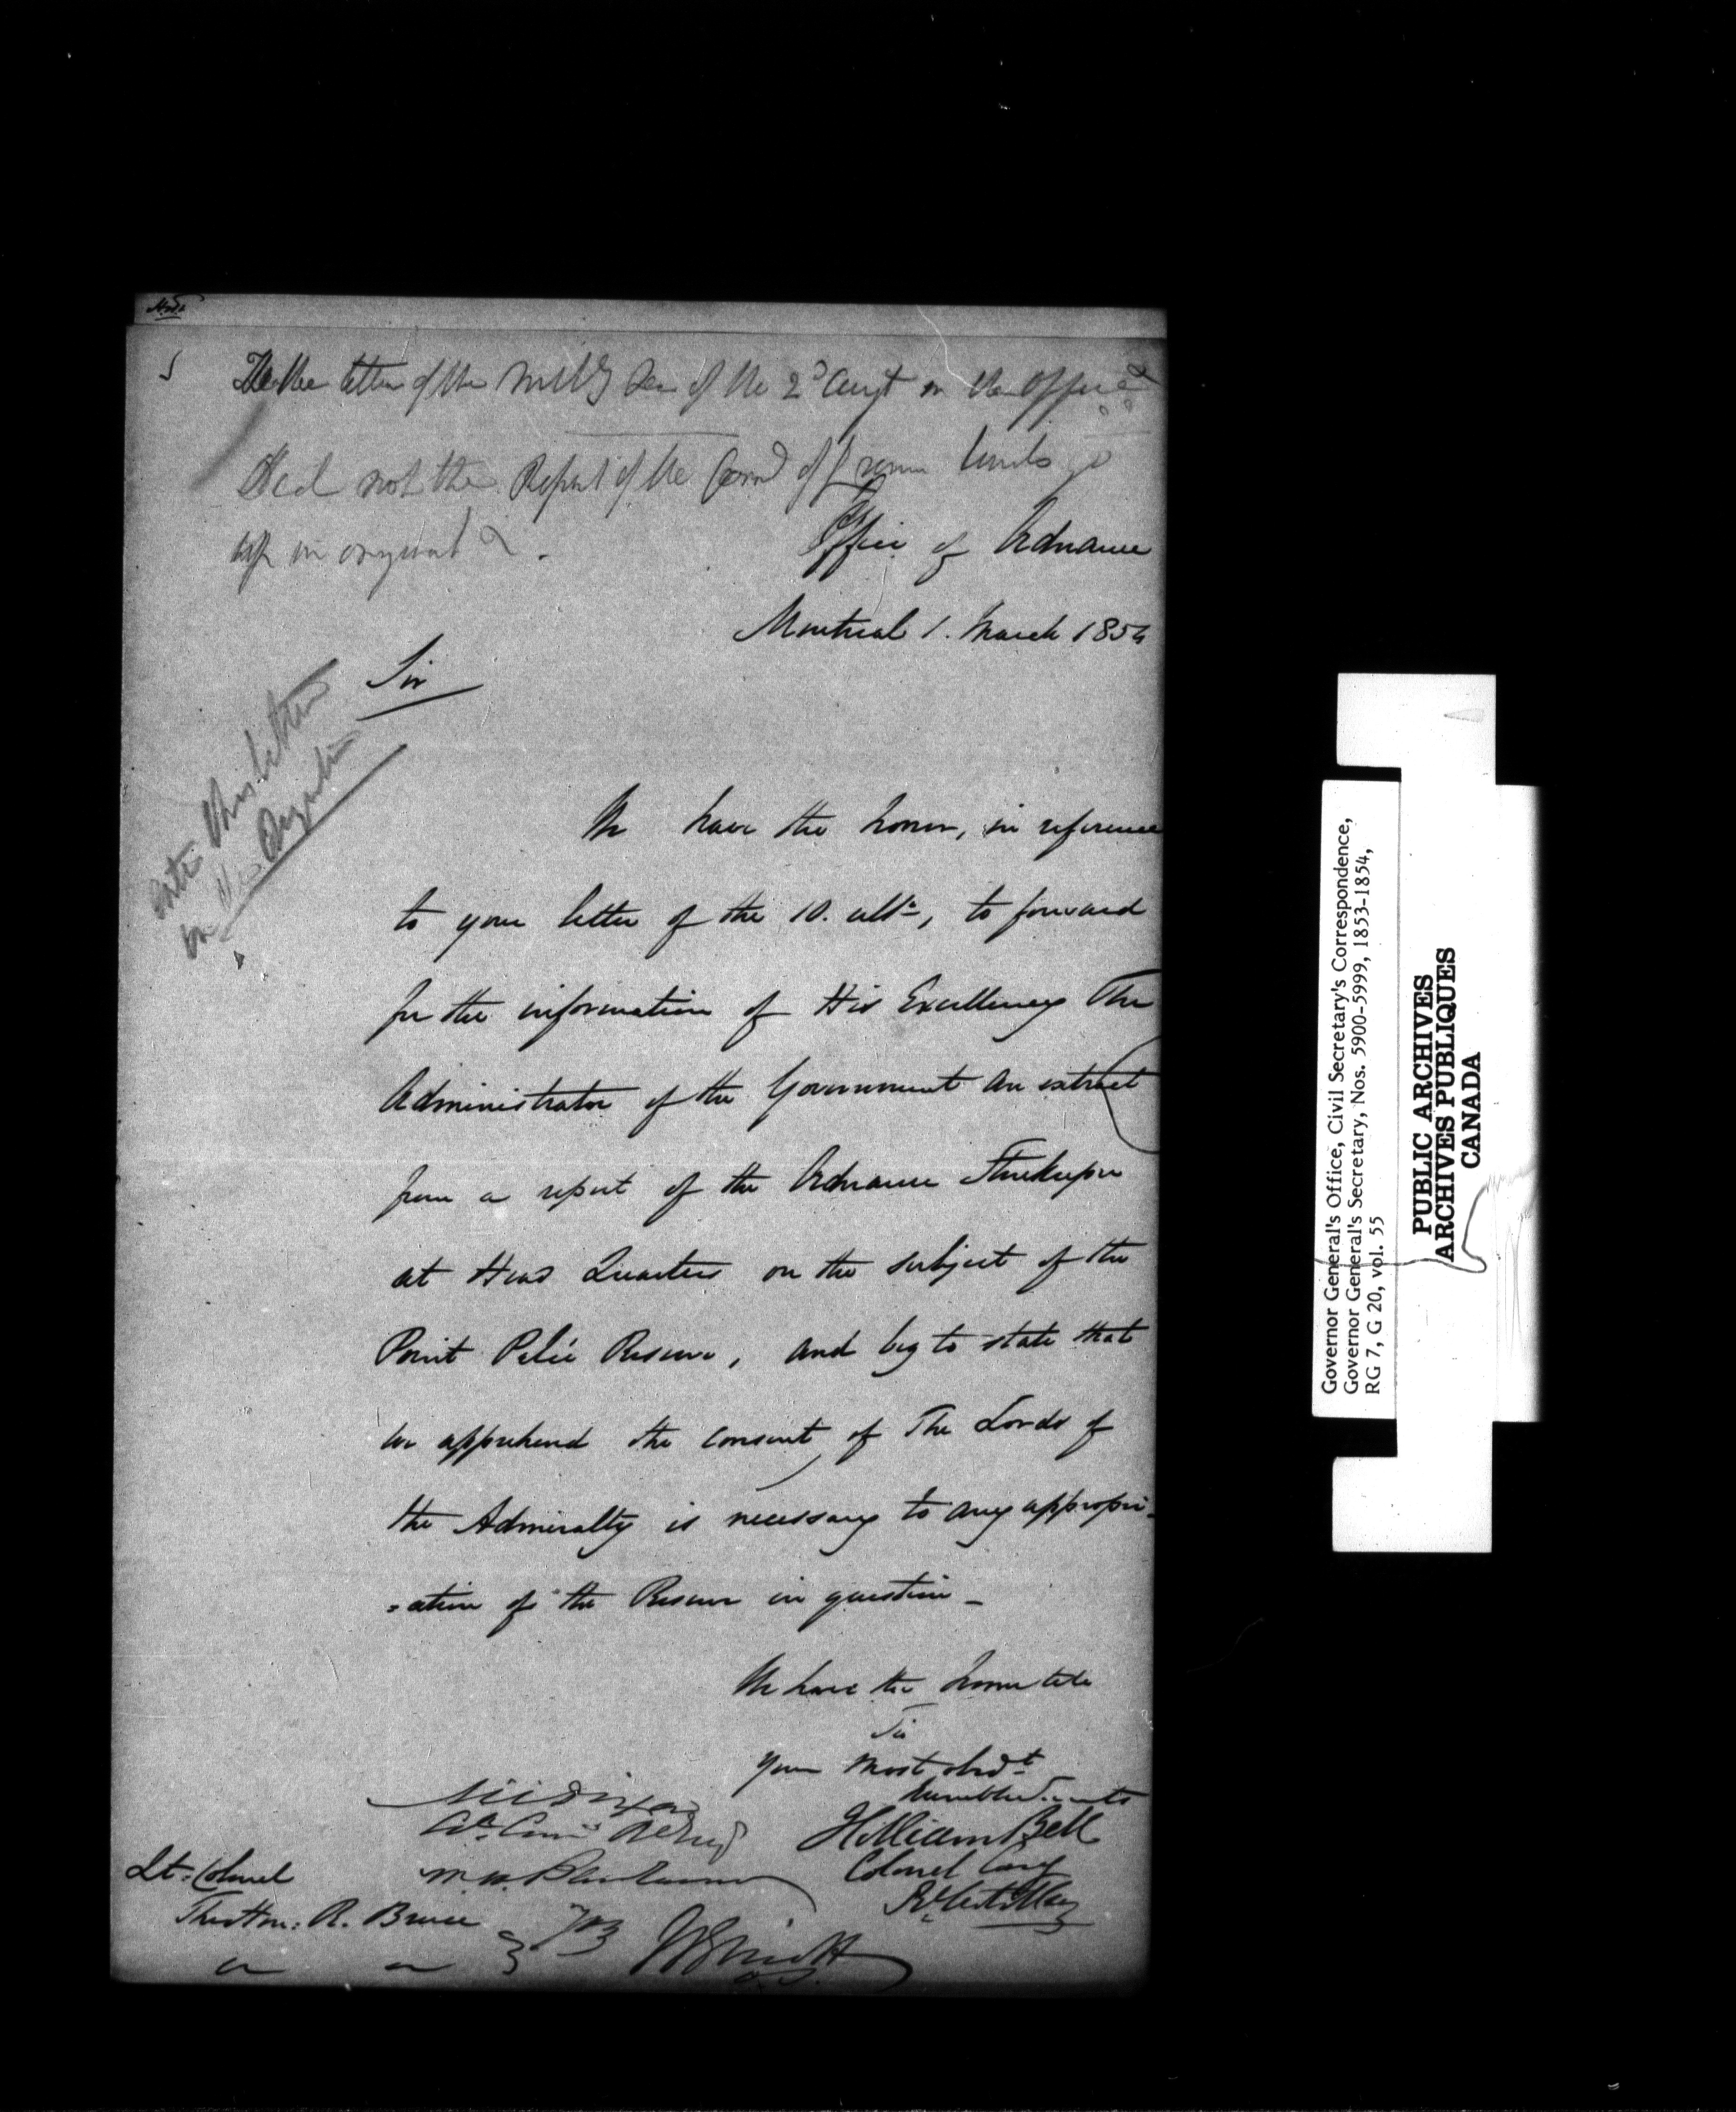 letter of the Mil[y] Sec of the 2[d] Augt in the office
Did not the Report of the of Crown Lands go
up in original
Office of Ordnance
Montreal 1. March 1854
Sir
this letter
on
We have the honor, in reference
to your letter of the 10. ulto, to forward
for the information of His Excellency The
Administrator of the Government an extract
from a report of the Ordnance Storekeeper
at Head Quarters on the subject of the
Point Pelée Reserve, and beg to state that
we apprehend the consent of The Lords of
the Admiralty is necessary to any appropri-
=ation of the Reserve in question _
We have the honor to be
Sir
Your most obedt
humble Servants
William Bell
Colonel
Lt. Colonel
The Hon: R. Bruce
Governor General's Office, Civil Secretary's Correspondence,
Governor General's Secretary, Nos. 5900-5999, 1853-1854,
RG 7, G 20, vol. 55
PUBLIC ARCHIVES
ARCHIVES PUBLIQUES
CANADA